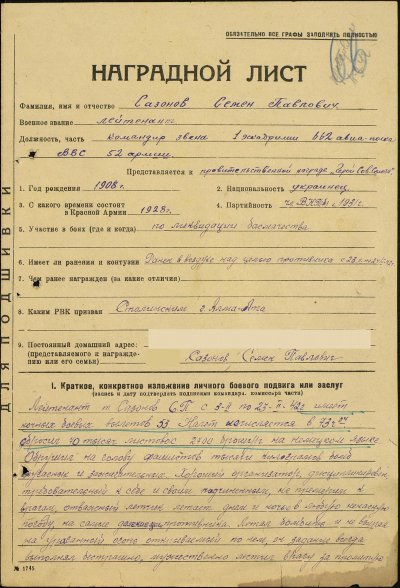 ОБЯЗАТЕЛЬНО ВСЕ ГРАФЫ ЗАПОЛНЯТЬ ПОЛНОСТЬЮ
НАГРАДНОЙ ЛИСТ
Фамилия, имя и отчество Сазонов Семен Павлович
Военное звание лейтенант
Должность, часть командир звена 1 эскадрилии 662 авиа-полка
ВВС 52 армии
Представляется к правительственной награде "Герой Сов.Союза"
1. Год рождения 1906 г. 2. Национальность украинец
3. С какого времени состоит в Красной Армии 1928 г. 4. Партийность чл. ВКП(б) с 1931 г.
5. Участие в боях (где и когда) по ликвидации басмачества
6. Имеет ли ранения и контузии Ранен в воздухе над целью противника
7. Чем ранее награжден (за какие отличия)
8. Каким РВК призван Сталинским г. Алма-Ата
9. Постоянный домашний адрес:
(представляемого к награждению или его семьи) Сазонов, Семен Павлович
ДЛЯ ПОДШИВКИ
I. Краткое, конкретное изложение личного боевого подвига или заслуг
(запись и дату подтвердить подписями командира, комиссара части)
Лейтенант т. Сазонов С.П. с по имеет
ночных боевых вылетов 53 Налет исчисляется в
сбросил 40 тысяч листовок 2400 брошюр на немецком языке
Обрушил на голову фашистов тысячи килограмм бомб
фугасных и Хороший организатор, дисциплинирован
требовательный к себе и своим подчиненным, не примирим к
врагам, отважный летчик летает днем и ночью в любую ненастную
погоду, на самые противника. Летая бомбить и не взирая
на ураганный огонь открываемый по нем, он задание всегда
выполнял бесстрашно, мужественно мстил врагу за
№ 1745